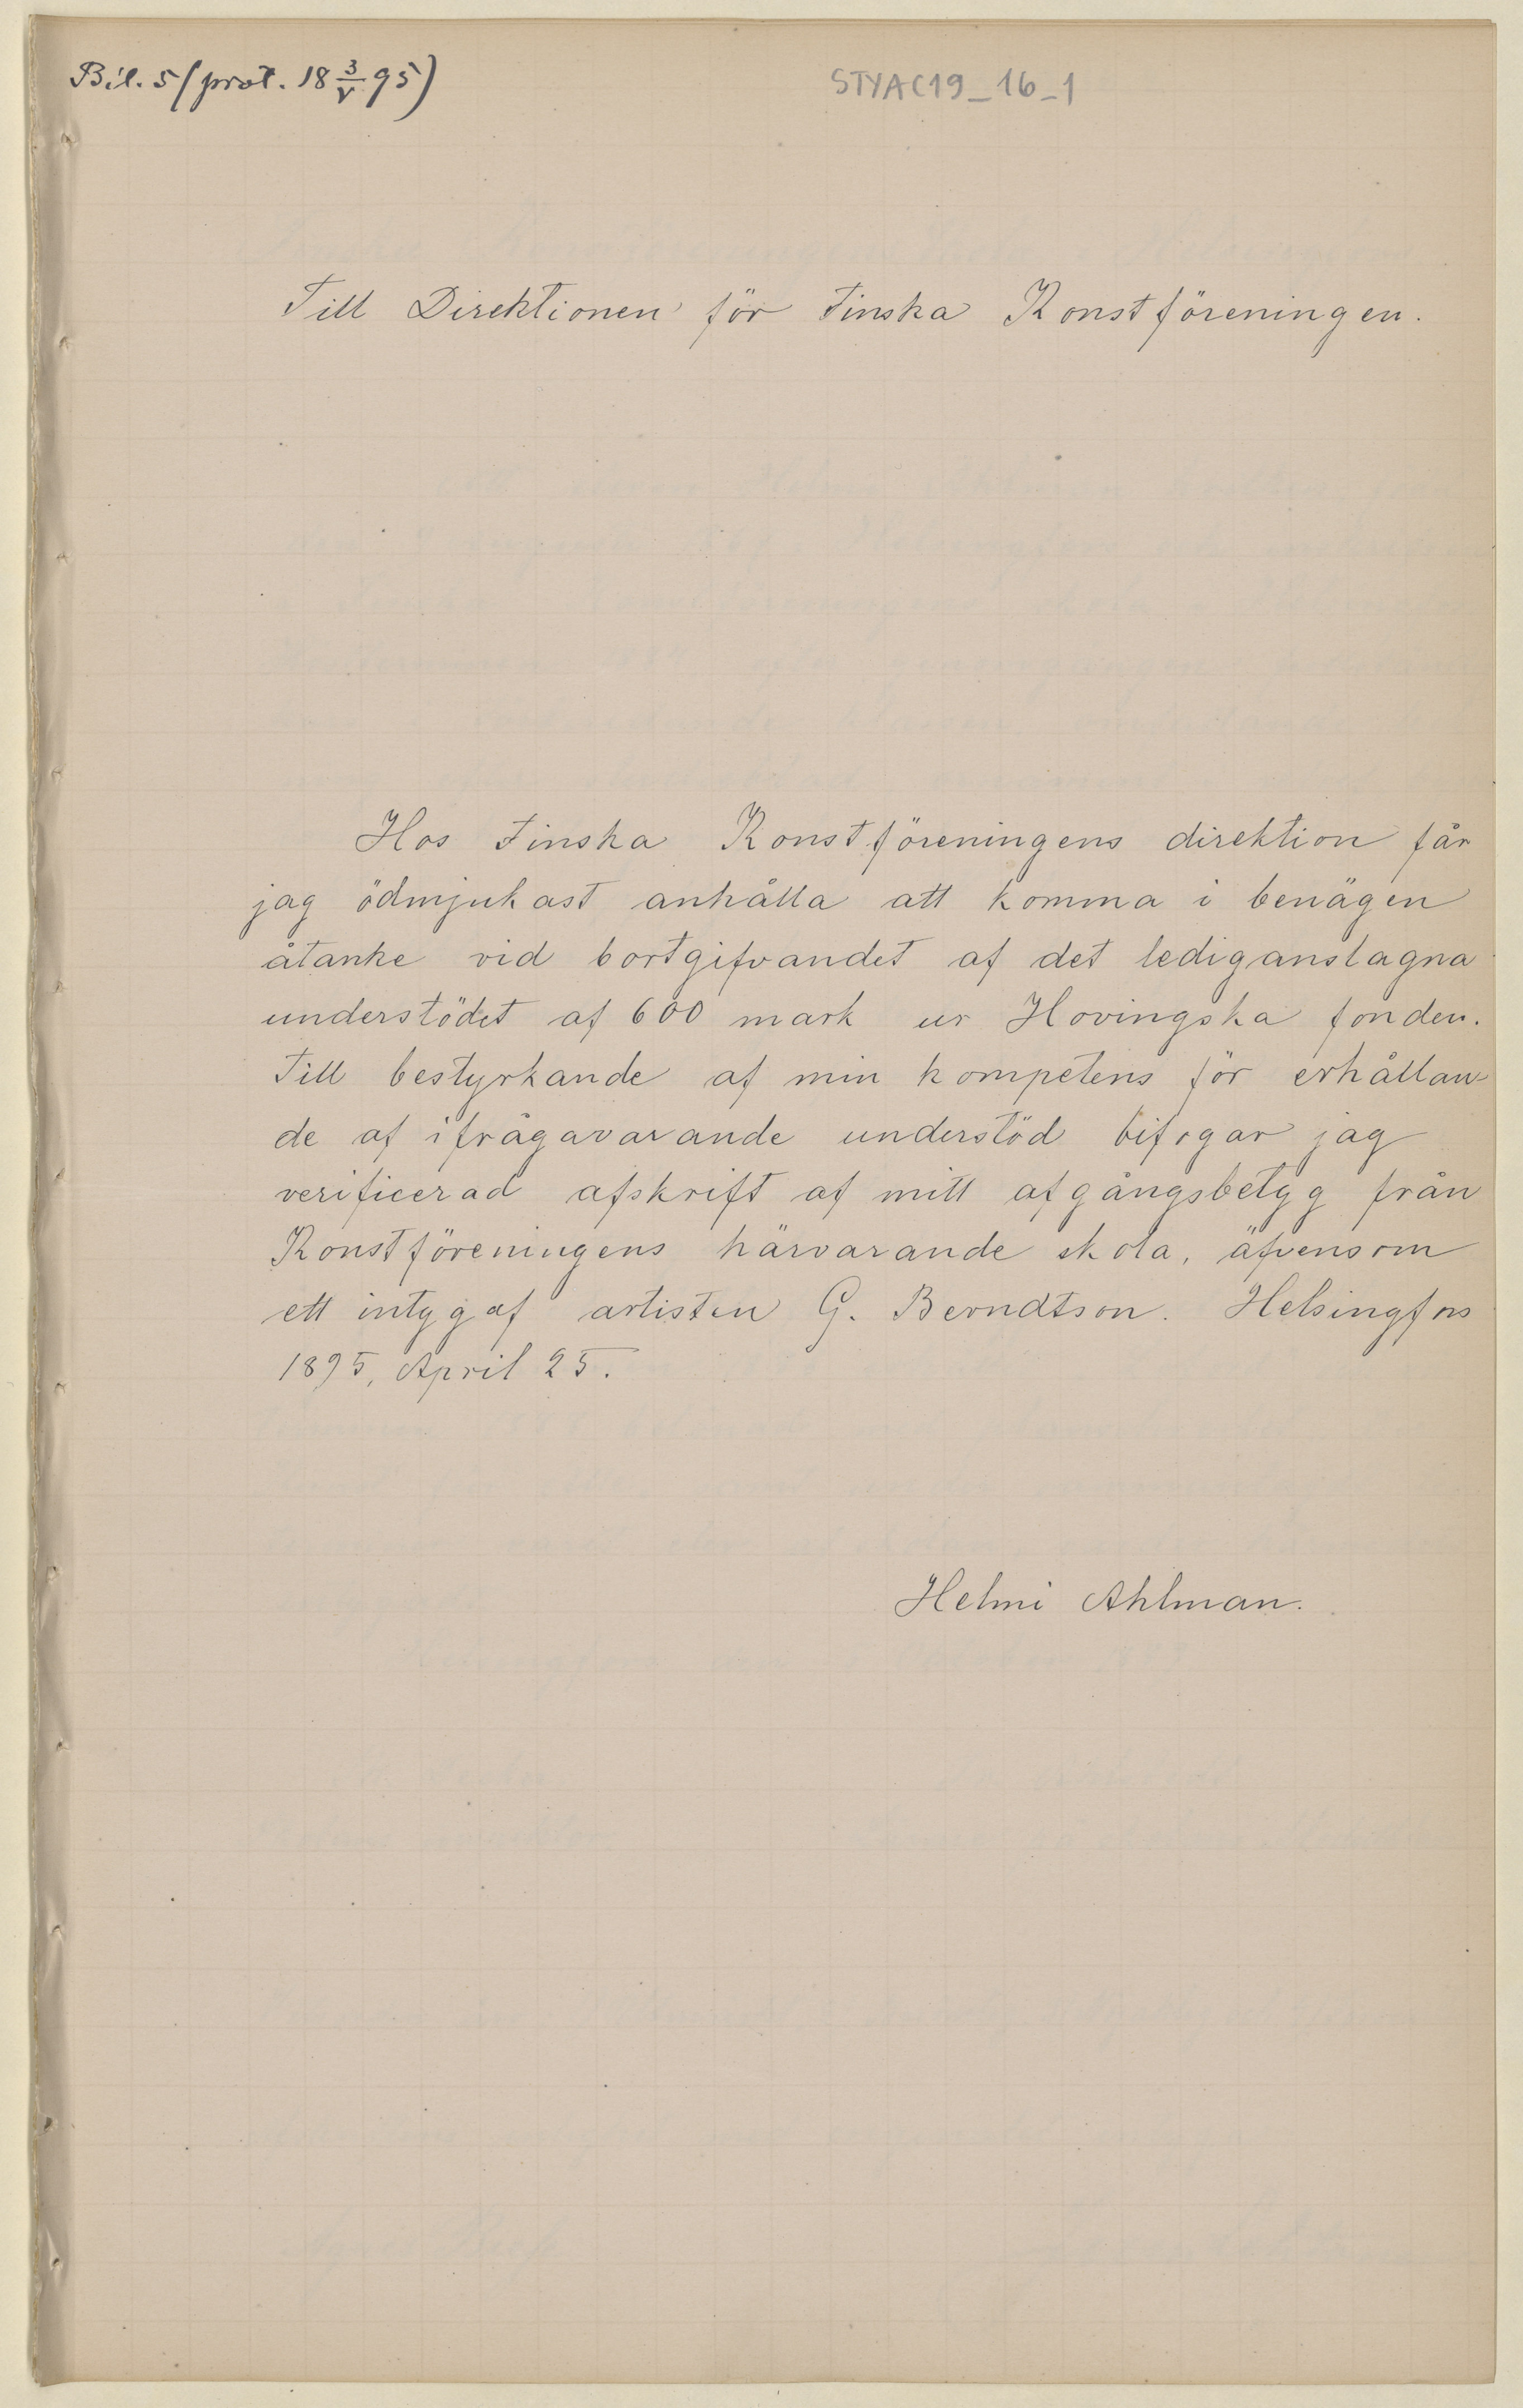 Bil. 5 (prot. 18 3/V 95)
STYAC19_16_1
Till Direktionen för Finska Konstföreningen.
Hos Finska Konstföreningens direktion får
jag ödmjukast anhålla att komma i benägen
åtanke vid bortgifvandet af det lediganslagna
understödet af 600 mark ur Hovingska fonden.
Till bestyrkande af min kompetens för erhållan-
de af ifrågavarande understöd bifogar jag
verificerad afskrift af mitt afgångsbetyg från
Konstföreningens härvarande skola, äfvensom
ett intyg af artisten G. Berndtson. Helsingfors
1895, April 25.
Helmi Ahlman.